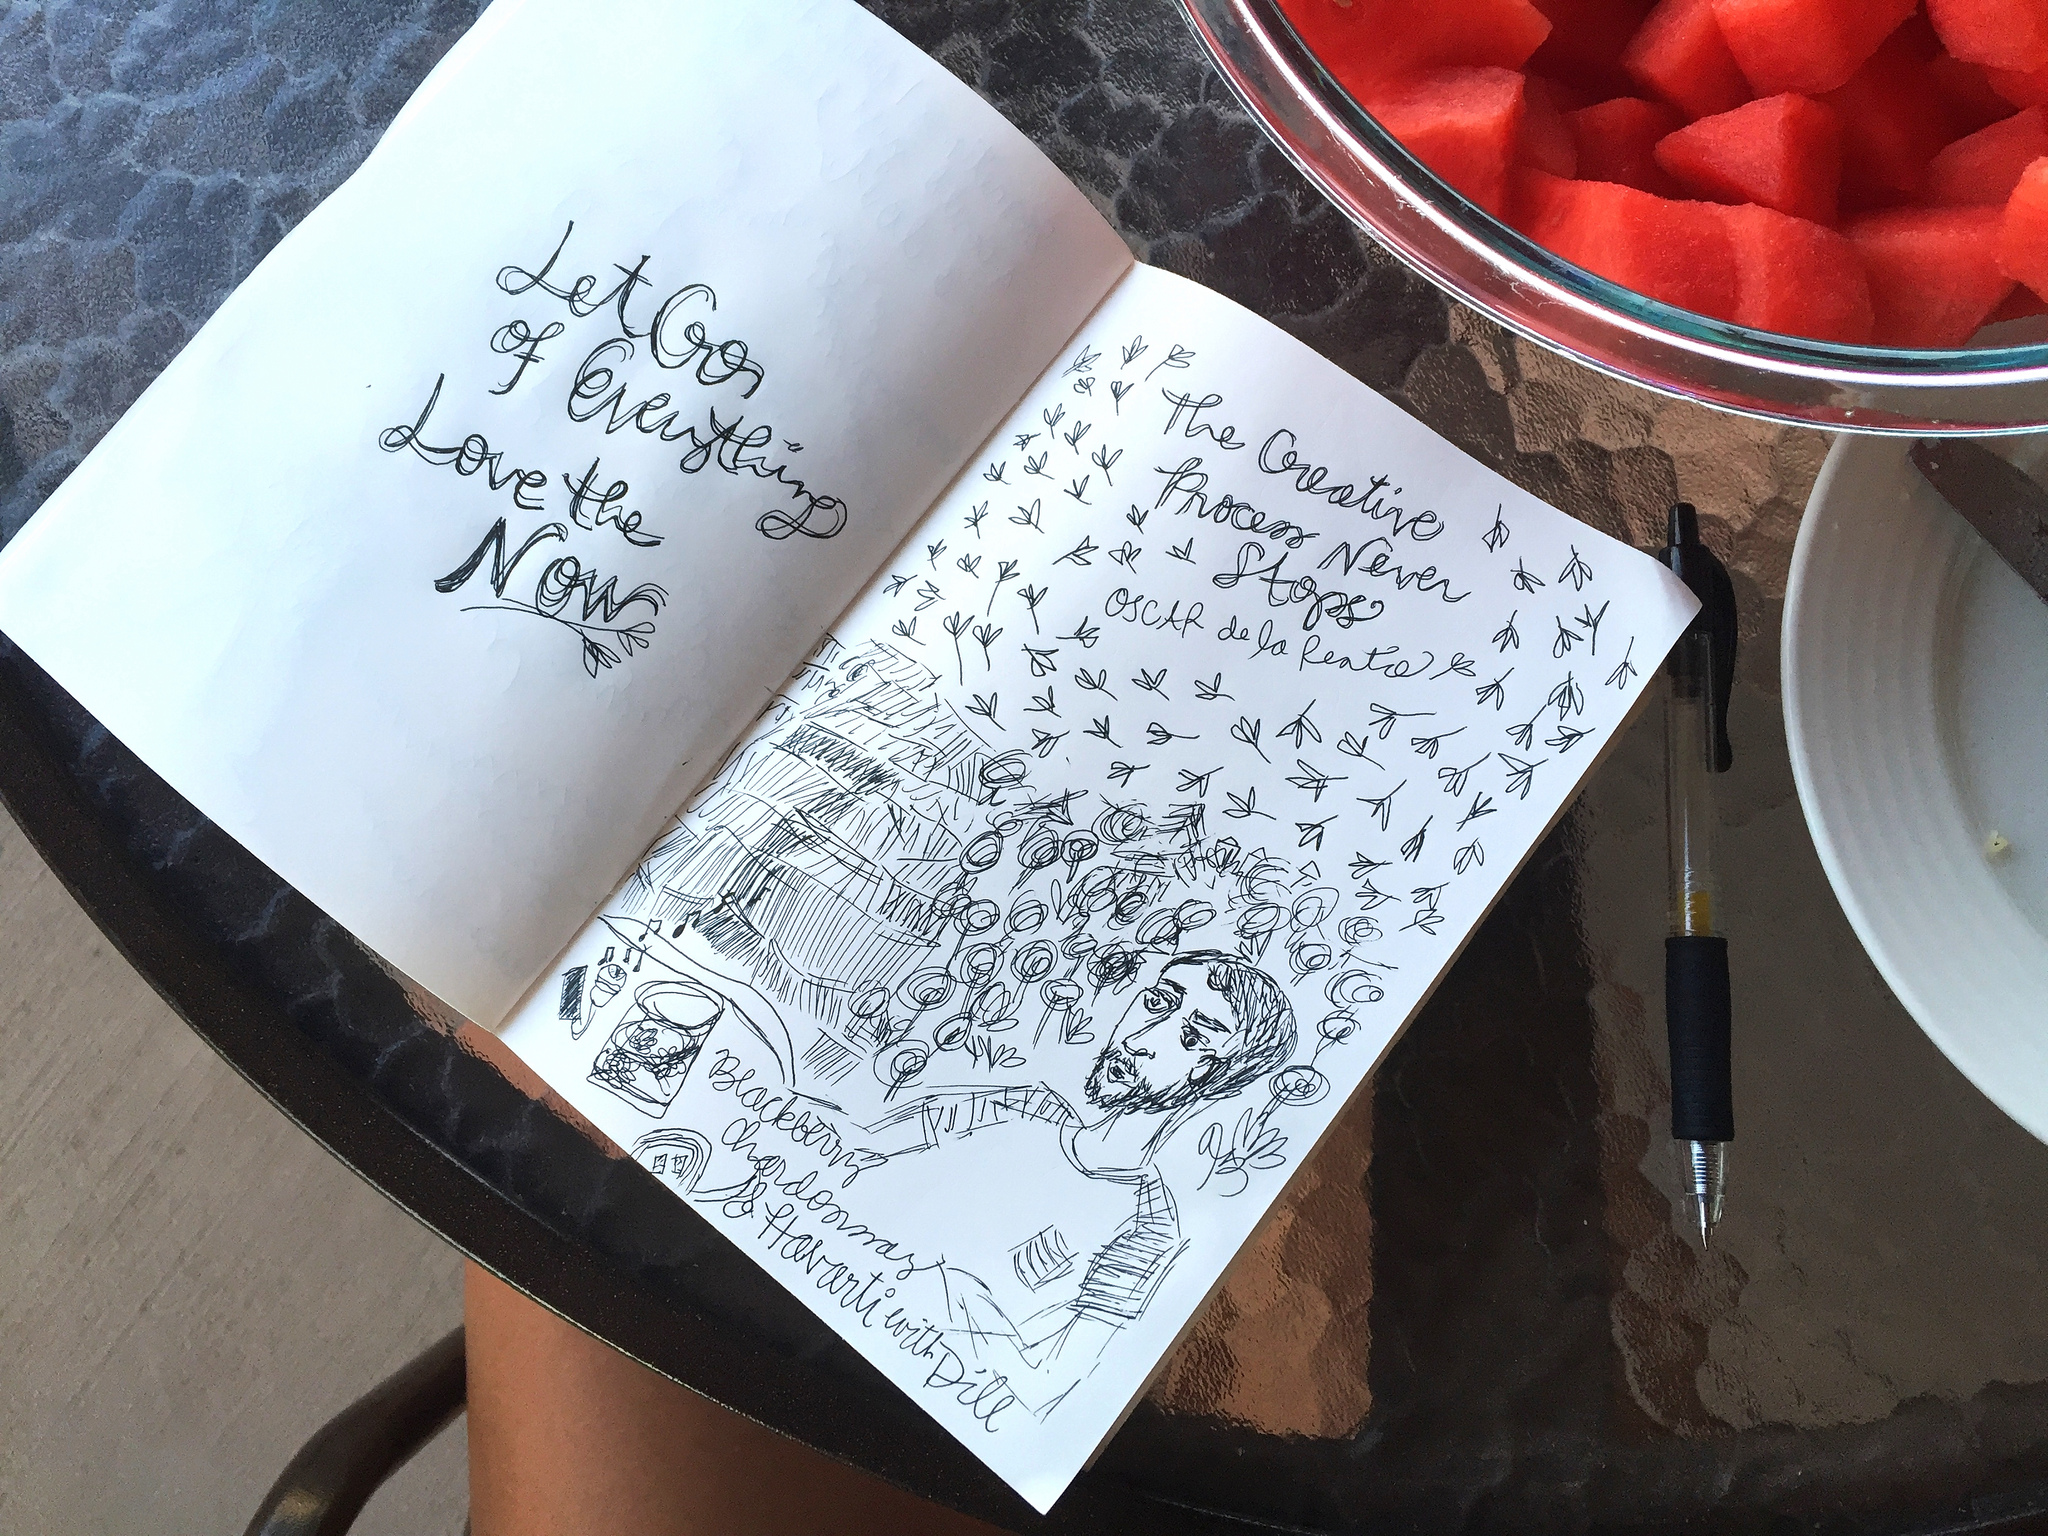 Let Go
of Everything
Love the
Now
The Creative
Process Never
Stops
OSCAR de la Renta
Blackberry
Chardonnay
& Havarti with Dill